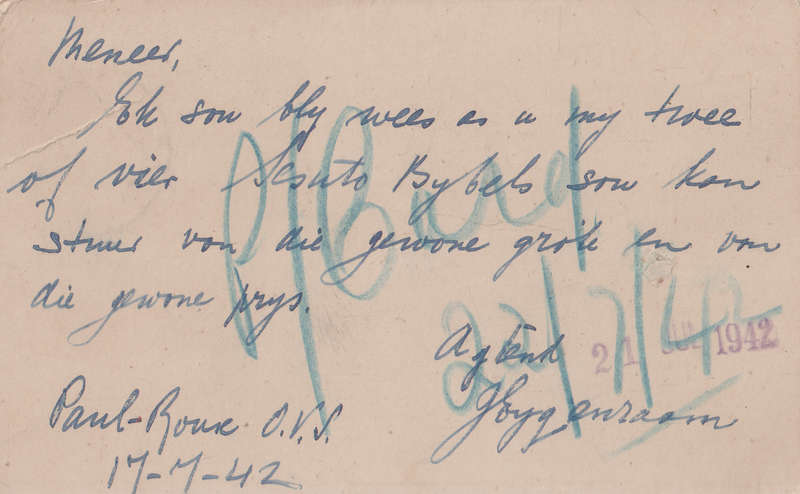 Meneer,
Ek sou bly wees as u my twee
of vier Sesuto Bybels sou kan
stuur van die gewone grote en van
die gewone prys.
P/Card
22/7/42
Agtend
21 JUL 1942
Paul-Roux O.V.S.
17-7-42